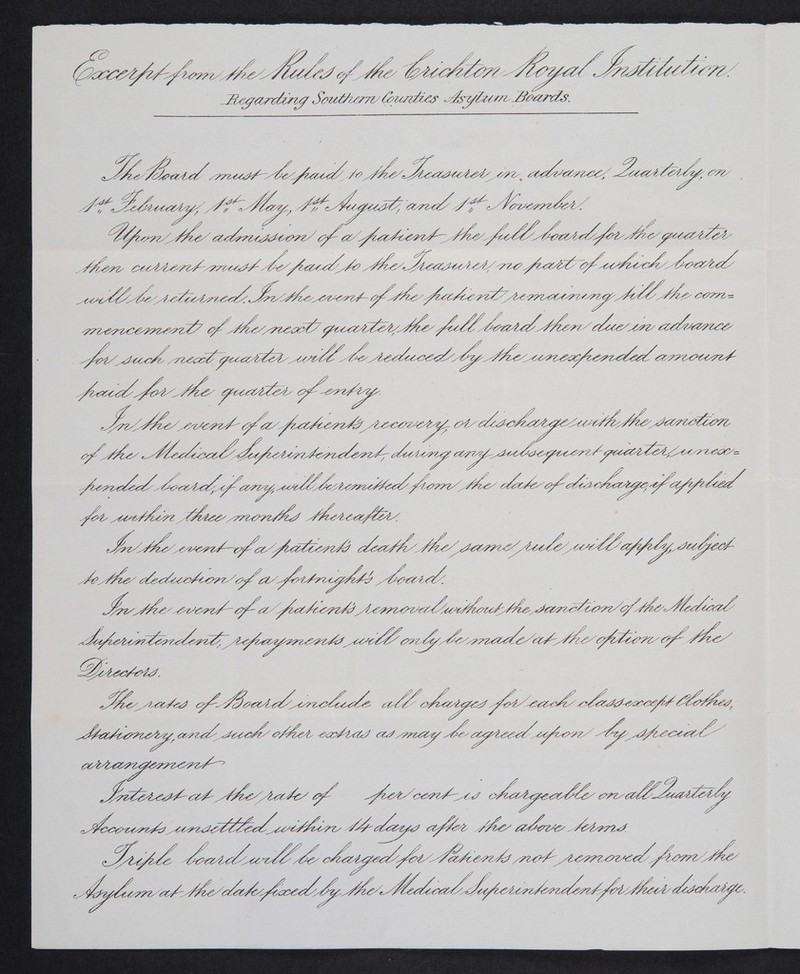 Excerpt from the Rules of the Crichton Royal Institution.
Regarding Southern Counties Asylum Boards.
The Board must be paid to the Treasurer, in advance, Quarterly, on
1st February, 1st May, 1st August, and 1st November.
Upon the admission of a patient the full board for the quarter
then current must be paid to the Treasurer, no part of which board
will be returned. In the event of the patient remaining till the com=
mencement of the next quarter, the full board then due in advance
for such next quarter will be reduced by the unexpended amount
paid for the quarter of entry.
In the event of a patient's recovery, or discharge with the sanction
of the Medical Superintendent, during any subsequent quarter, unex=
pended board, if any, will be remitted from the date of discharge, if applied
for within three months thereafter.
In the event of a patient's death the same rule will apply, subject
to the deduction of a fortnight's board.
In the event of a patient's removal without the sanction of the Medical
Superintendent, repayments will only be made at the option of the
Directors.
The rates of Board include all charges for each class except Clothes,
Stationery, and such other extras as may be agreed upon by special
arrangement
Interest at the rate of per cent is chargeable on all Quarterly
Accounts unsettled within 14 days after the above terms.
Triple board will be charged for Patients not removed from the
Asylum at the date fixed by the Medical Superintendent for their discharge.